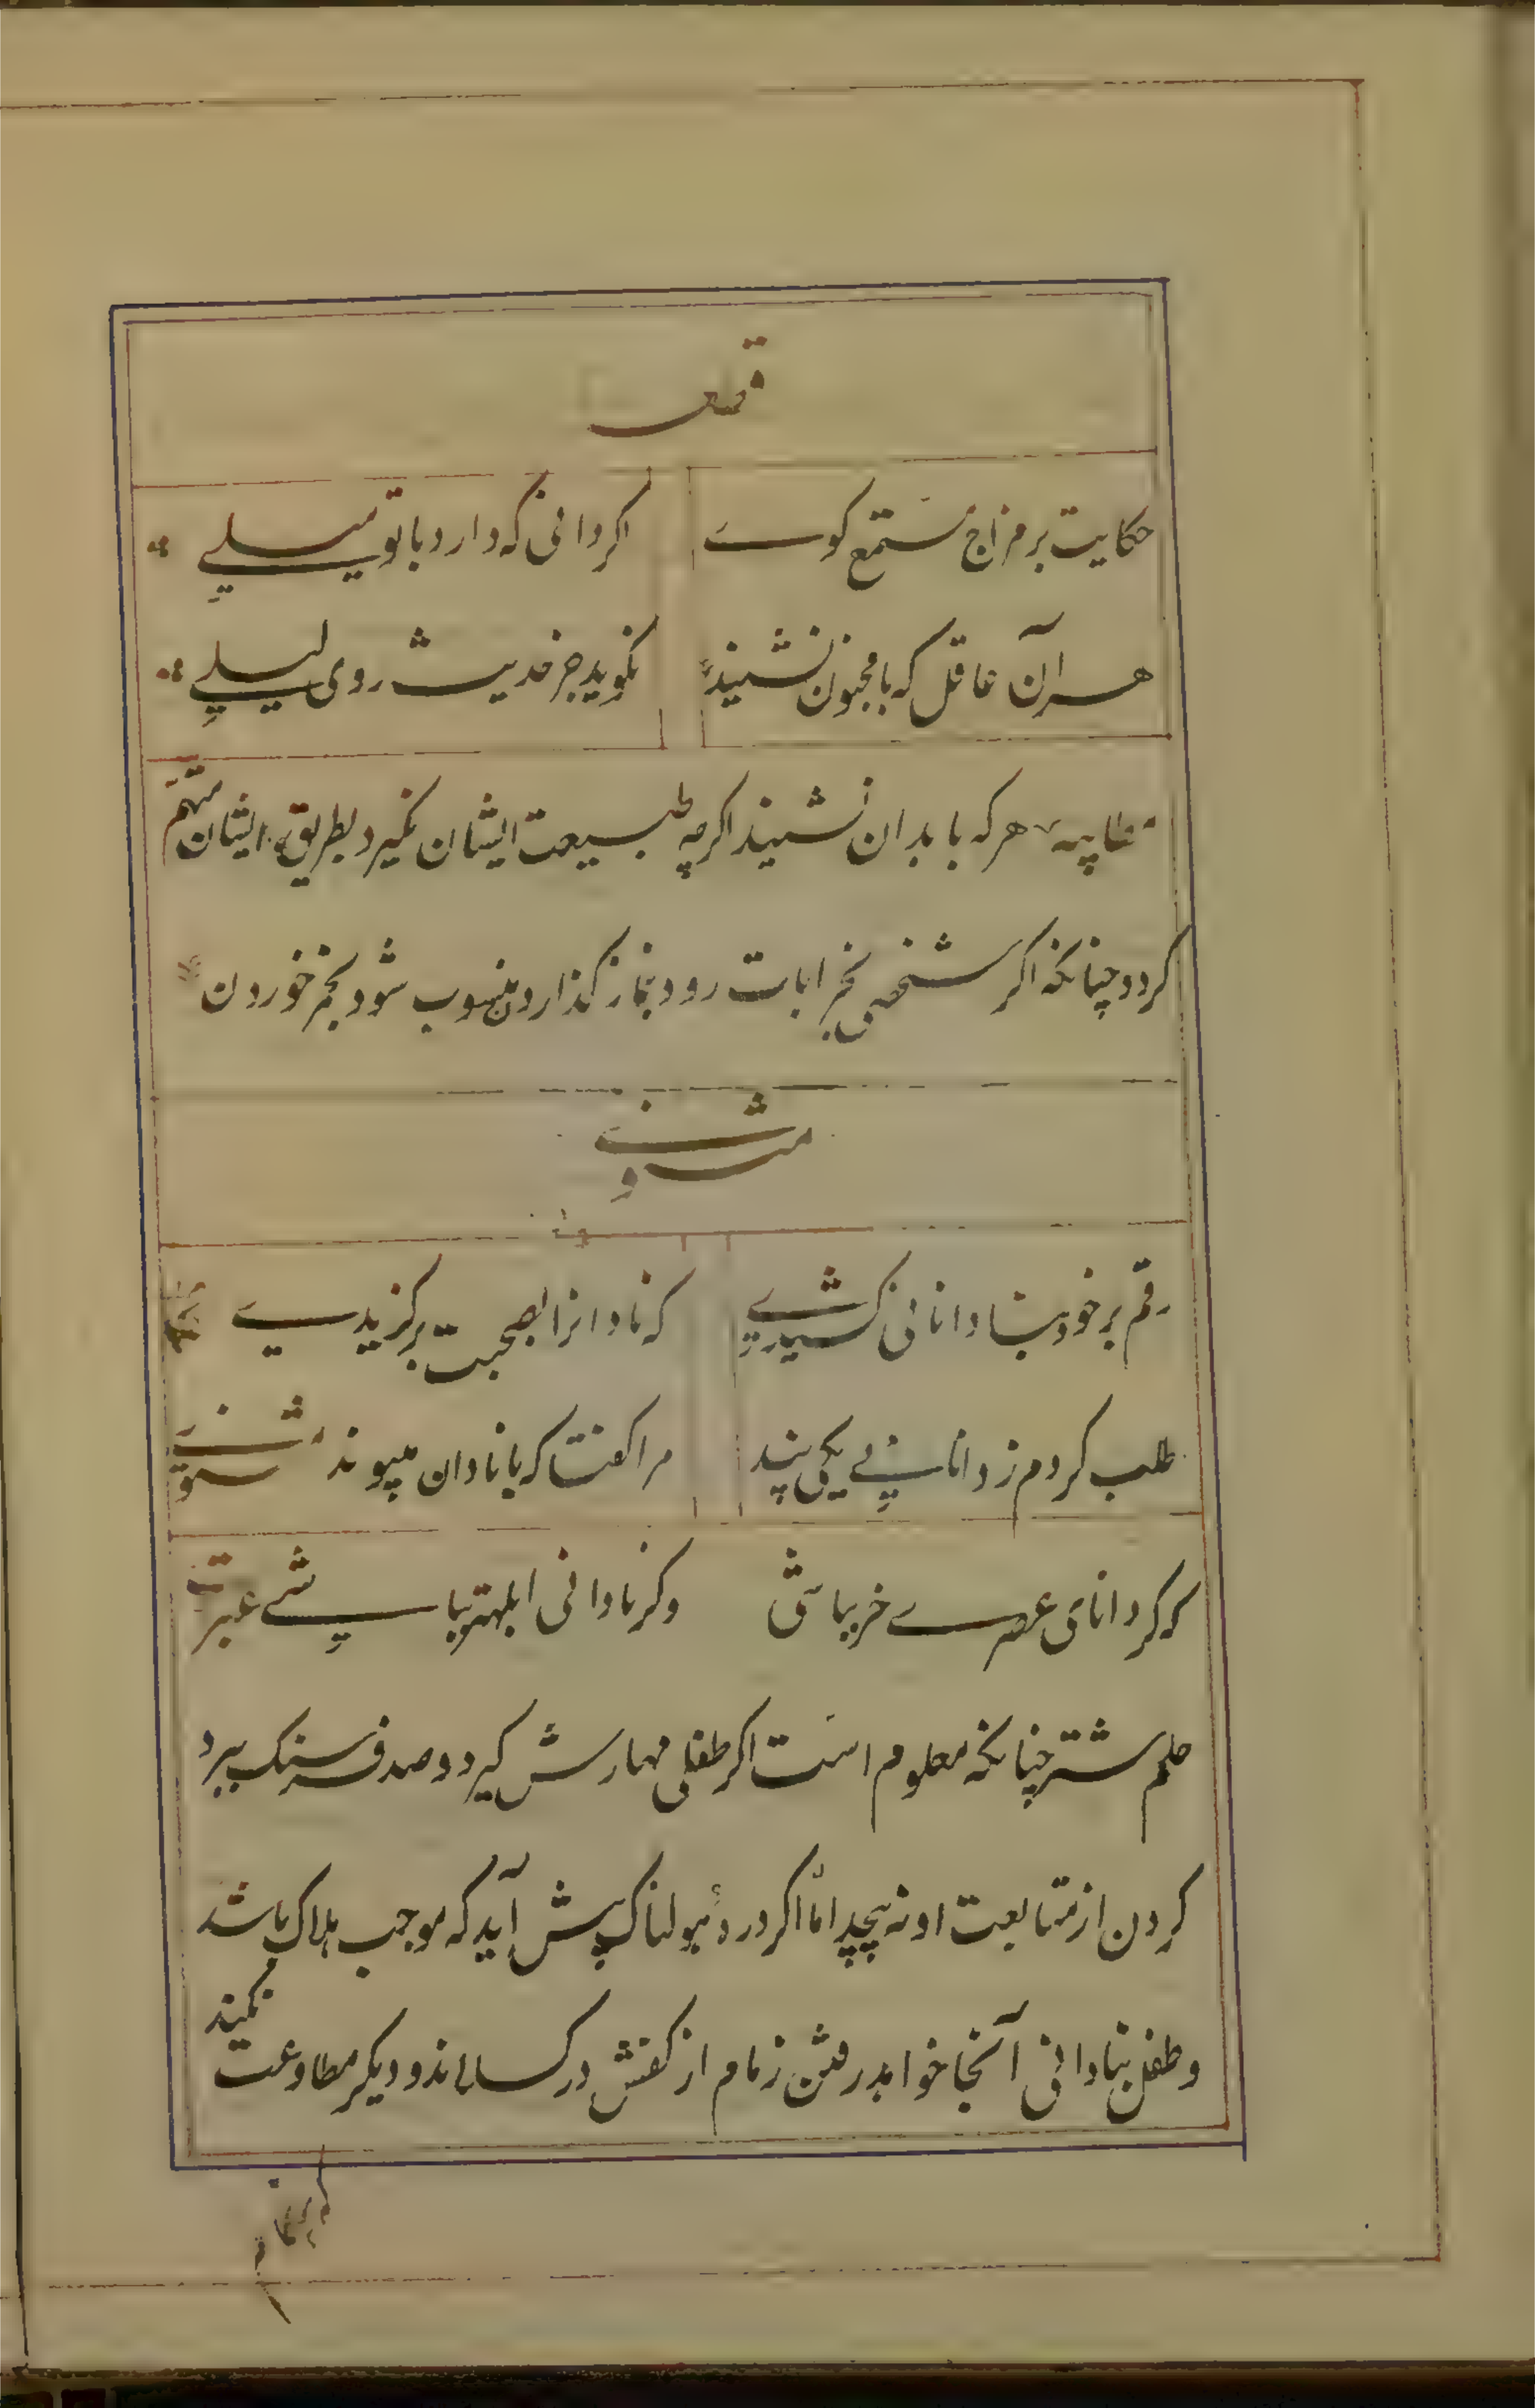 قطعه
حکایت بر مزاج مستمع کوے اکر دانی که دارد با تو میلے
هر آن عاقل که با مجنون نشیند نکوید جز حدیث روی لیلے
هر که با بدان نشیند اکرچه طبیعت ایشان نکیرد بطریق ایشان متهم
کردد چنانکه اکر شخصی بخرابات رود بنماز کذاردن منسوب شود بخمر خوردن
مثنوے
رقم بر خود بنادانی کشیدے که نادانرا بصحبت برکزیدے
طلب کردم ز دانایے یکی پند مرا کفتا که با نادان مپیوند مثنوے
که کر دانای عصرے خر بباشی وکر نادانی ابلهتر بباشے عبرت
حلم شتر چنانکه معلوم است اکر طفلی مهارش کیرد و صد فرسنک ببرد
کردن از متابعت او نه پیچد امّا اکر درۀ هولناک پیش آید که موجب هلاک باشد
و طفل بنادانی آنجا خواهد رفتن زمام از کفش درکسلاند و دیکر مطاوعت نکند